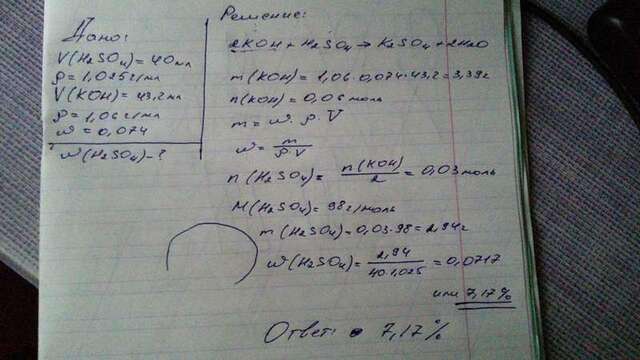 Дано:
V(H₂SO₄) = 40мл
ρ = 1,025г/мл
V(KOH) = 43,2мл
ρ = 1,06г/мл
ω = 0,074
ω(H₂SO₄) - ?
Решение:
2KOH + H₂SO₄ → K₂SO₄ + 2H₂O
m(KOH) = 1,06·0,074·43,2 = 3,39г
n(KOH) = 0,06моль
m = ω ρ V
ω = m / ρ V
n(H₂SO₄) = n(KOH) / 2 = 0,03моль
M(H₂SO₄) = 98г/моль
m(H₂SO₄) = 0,03·98 = 2,94г
ω(H₂SO₄) = 2,94 / 40·1,025 = 0,0717
или 7,17%
Ответ: 7,17%